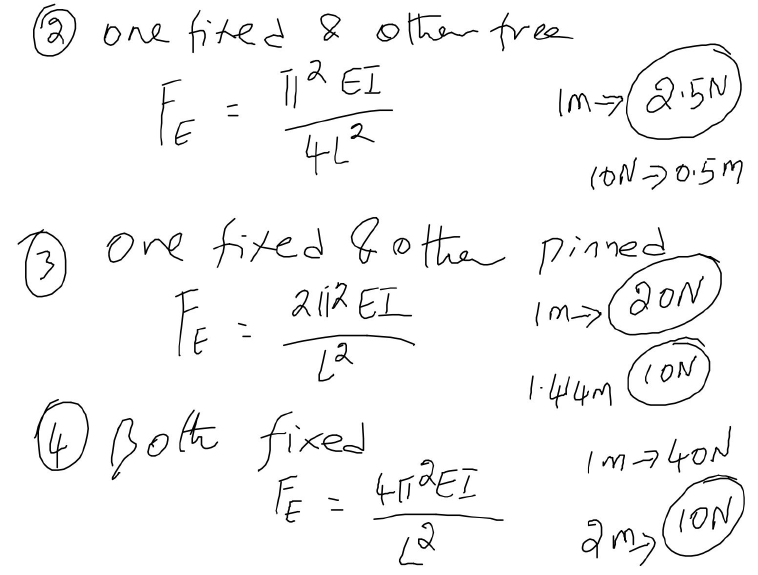 ② one fixed & other free
F_E = π² EI / 4L²
1m ⇒ 2.5N
10N → 0.5m
③ one fixed & other pinned
F_E = 2π² EI / L²
1m → 20N
1.44m 10N
④ Both fixed
F_E = 4π² EI / L²
1m → 40N
2m → 10N